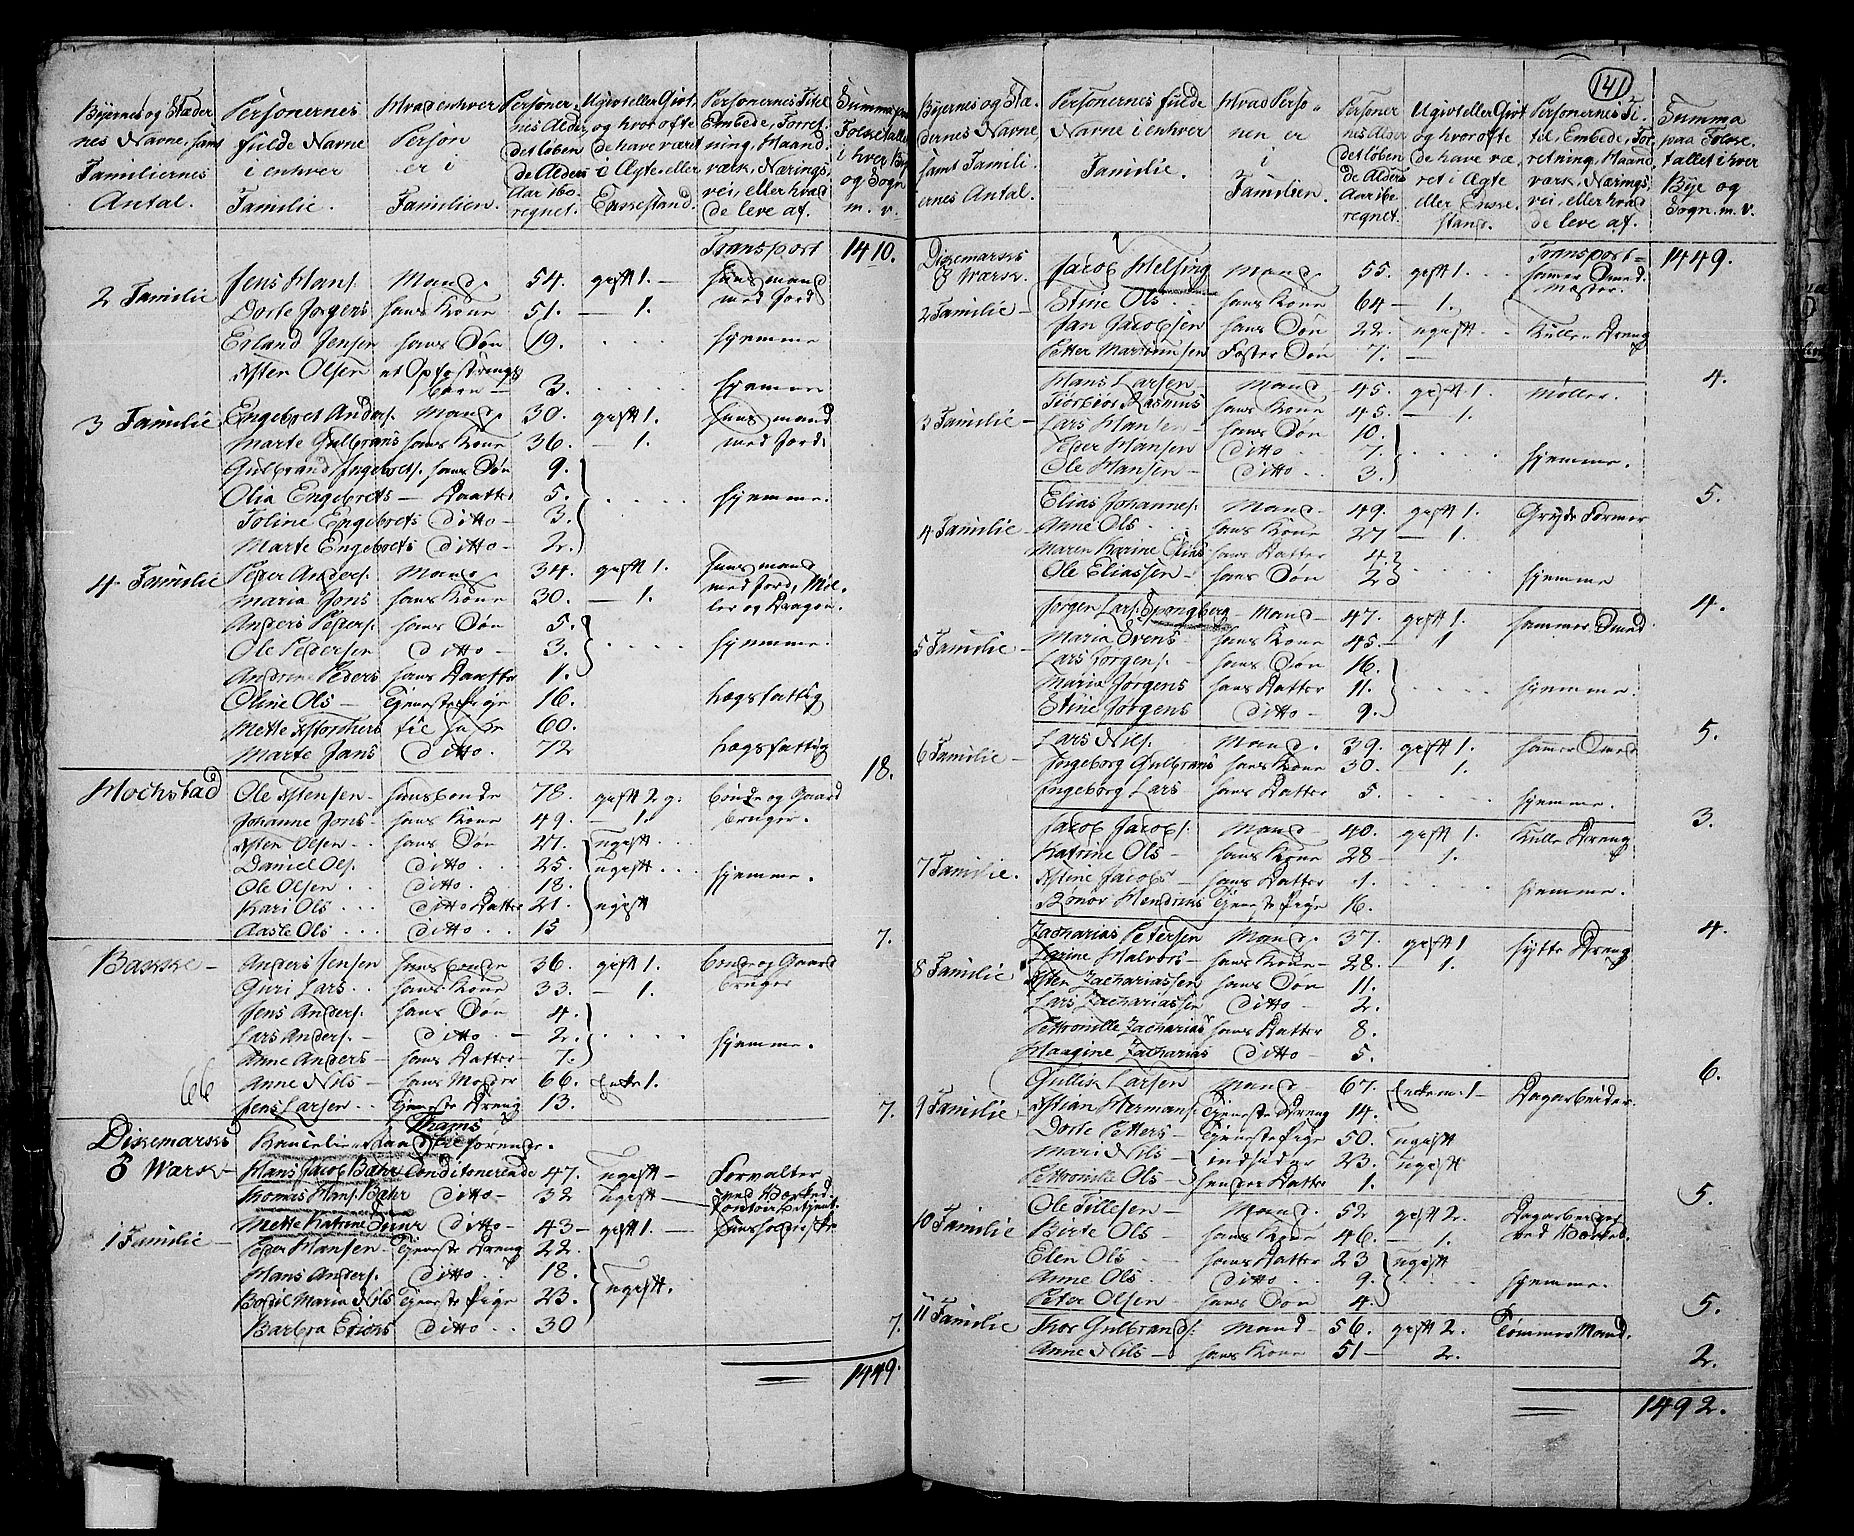 Byernes og Stæder
nes Navne, samt
Familiernes
Antal.
Personernes
fulde Navne
i enhver
Familie.
Hvad enhver
Person
er i
Familien.
Personer
nes Alder
det løben
de Alders
Aar ibe
regnet.
Ugivt eller Givt,
og hvor ofte
de have været
i Ægte eller
Enkestand.
Personernes Titel
Embede, Forret
ning, Haand
værk, Nærings
vei, eller hvad
de leve af.
Summa paa
Folketallet
i hver Bye
og Sogn
m. v.
Transport 1410.
2 Familie Jens Hans. Mand 54. gift 1. Huusmand
Dorte Jørgens hans Kone 51. — 1. med Jord.
Erland Jensen hans Søn 19. hjemme
Østen Olsen et Opfostrings
barn — 3. hjemme
3 Familie Engebret Anders. Mand 30. gift 1. Huusmand
Marte Gulbrans hans Kone 36. — 1. med Jord.
Gulbrand Ingebrets. hans Søn 9.
Olia Engebrets — Daatter 5. hjemme.
Toline Engebrets ditto — 3.
Marte Engebrets ditto — 2.
4 Familie Peder Anders. Mand 34. gift 1. Huusmand
Maria Jons hans Kone 30. — 1. med Jord, Møl
ler og Dragon.
Anders Peders. hans Søn 5.
Ole Pedersen ditto — 3. hjemme.
Andrine Peders hans Daatter 1.
Oline Ols — Tjenestepige 16. Lægsfattig
Mette 60.
Marte Jans ditto. 72 Lægsfattig
18.
Hochstad Ole Østensen — Huusbonde 78. gift 2 g. Bonde og Gaard
Johanne Jons — hans Kone 49. — 1. bruger.
Østen Olsen hans Søn 27. ugift
Daniel Ols. ditto 25. ugift
Ole Olsen ditto. 18. hjemme.
Kari Ols ditto Datter 21. ugift
Aasle Ols ditto 15
7.
Bakke — Anders Jensen Huusbonde 36. gift 1. Bonde og Gaard
Guri Lars hans Kone 33. — 1. bruger
Jens Anders. hans Søn 4.
Lars Anders. ditto — 2.
Anne Anders — hans Datter 7. hjemme.
66 Anne Nils — hans Moder 66. Enke 1.
Jens Larsen Tjeneste Dreng 13.
7.
Dikemarks Thams
Kancelieraad
& Værk — Hans Jacob Bæhr Conditonerende 47. Ugift — Forvalter
Thomas Hans. Bæhr ditto — 32 Ugift — ved Værket.
1 Familie — Mette Katrine ditto — 43 — gift 1. —
Peder Hansen — Tjeneste Dreng 22.
Hans Anders. ditto 18. Ugift.
Bodil Maria Nils Tjeneste Pige 23.
Barbra Erichs ditto 30
7.
1449.
141
Byernes og Stæ
dernes Navne
samt Famili
ernes Antal.
Personernes fulde
Navne i enhver
Familie.
Hvad Perso
nen er
i
Familien.
Personer
nes Alder
det løben
de Alders
Aar ibe
regnet.
Ugivt eller Givt
og hvor ofte
de have væ
ret i Ægte
eller Enke
stand.
Personernes Ti
tel, Embede, For
retning, Haand
værk, Nærings
vei, eller hvad
de leve af.
Summa
paa Folke
tallet i hver
Bye og
Sogn. m. v.
Transport — 1449.
Dikemarks Jacob Helsing Mand 55. gift 1. Hamer Smed
& Værk. Mester.
2 Familie — Stine Ols hans Kone 64 — 1.
Jan Jacobsen hans Søn 22. ugift Kulle Dreng
Petter Martinusen Foster Søn 7. —
4.
Hans Larsen — Mand 45. gift 1. Møller.
3 Familie — Tiorbiør Rasmus hans Kone 45. — 1.
Lars Hansen — hans Søn 10.
Peder Hansen ditto 7.
Ole Hansen — ditto 3. hjemme.
5.
Elias Johannes. Mand 49. gift 1. Gryde Former
4 Familie — Anne Ols hans Kone 27 — 1.
Maren Karine Elias hans Datter 4.
Ole Eliassen — hans Søn 2 hjemme
4.
Jørgen Lars. Spongberg — Mand 47. gift 1. Hammer Smed.
5 Familie — Maria Svens — hans Kone 45. — 1
Lars Jørgens. hans Søn 16.
Maria Jørgens hans Datter 11. hjemme.
Stine Jørgens ditto — 9.
5.
Lars Nils. Mand. 39. gift 1. Hamer Smed
6 Familie — Ingeborg Gulbrans hans Kone 30. — 1.
Ingeborg Lars hans Datter 5. hjemme.
3.
Jacob Jacobs. Mand — 40. gift 1. Kulle Dreng
Katrine Ols — hans Kone 28 — 1.
7 Familie. Østine Jacobs — hans Datter 1. hjemme.
Rønor Hendrichs Tjeneste Pige 16.
4.
Zacharias Petersen Mand 37. gift 1 Hytte Dreng
8 Familie Karine Halvors — hans Kone — 28. — 1.
Østen Zachariassen hans Søn 11.
Lars Zachariassen ditto 2.
Pettronille Zacharias hans Datter 8.
Haagine Zacharias ditto — 5.
6.
Gullik Larsen Mand 67. Enkem: 1 — Dagarbeider.
9 Familie Østian Hermans. Tjeneste Dreng 14.
Dorte Petters — Tjeneste Pige 50. Ugift
Mari Nils — indsidder 23. Ugift
Pettronille Ols — hendes Datter 1.
5.
Ole Tillesen — Mand 52 gift 2. Dagarbeider
10 Familie Birte Ols hans Kone 46. — 1. ved Værket.
Elen Ols hans Datter 23 ugift
Anne Ols ditto 9. hjemme.
Peter Olsen hans Søn 4.
5.
11 Familie Thor Gulbrands. Mand — 56. gift 2. Tømmer Mand.
Anne Nils — hans Kone 51 — 2. 2.
1492.